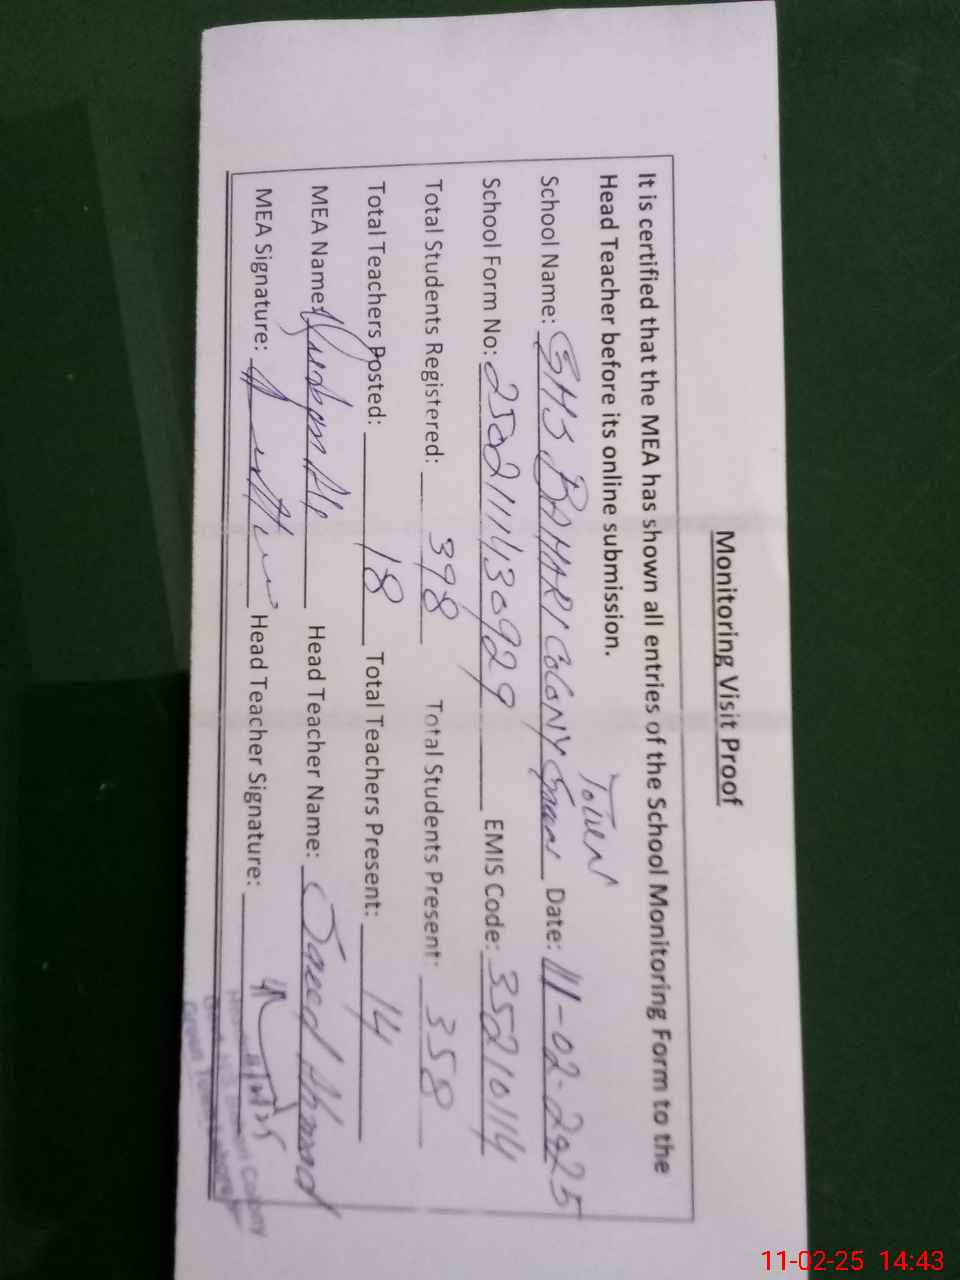 Monitoring Visit Proof
It is certified that the MEA has shown all entries of the School Monitoring Form to the
Head Teacher before its online submission.
Town
School Name: GHS BAHARI COLONY Date: 11-02-2025
School Form No: 25021114309 29 EMIS Code: 35210114
Total Students Registered: 398 Total Students Present: 358
Total Teachers Posted: 18 Total Teachers Present: 14
MEA Name: Head Teacher Name: Saeed Ahmad
MEA Signature: Head Teacher Signature:
11-02-25 14:43